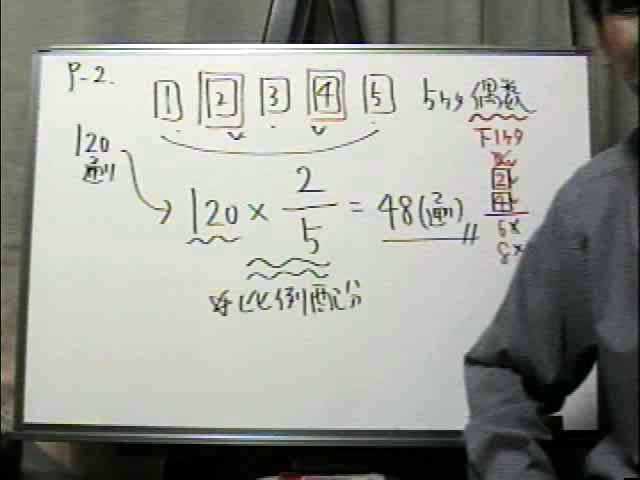 P-2.
1 2 3 4 5 5けタ偶数
120通り
下1ケタ
2
4
6×
8×
120 × 2/5 = 48(通り)
比例配分